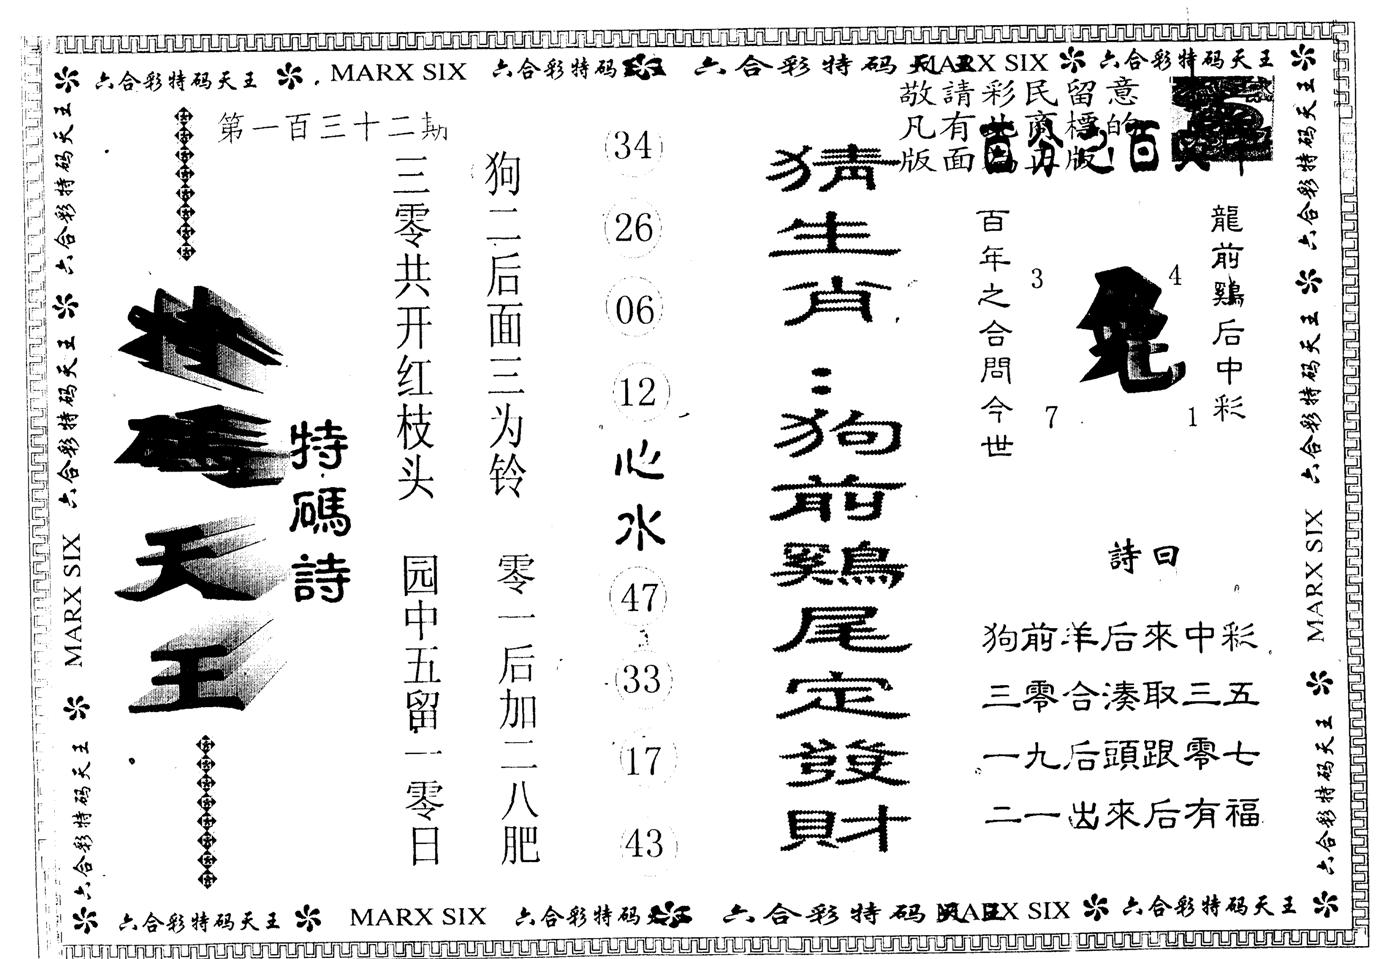 六合彩特码天王 MARX SIX 六合彩特码天王 六合彩特码天王 MARX SIX 六合彩特码天王
敬請彩民留意
凡有此商標的
版面為正版!
第一百三十二期
特碼天王
特碼詩
狗二后面三为铃 零一后加二八肥
三零共开红枝头 园中五留一零日
34
26
06
12
心水
47
33
17
43
猜生肖:狗前鷄尾定發財
龍前鷄后中彩
3 4
兔
7 1
百年之合問今世
詩曰
狗前羊后來中彩
三零合湊取三五
一九后頭跟零七
二一出來后有福
六合彩特码天王 MARX SIX 六合彩特码天王
六合彩特码天王 MARX SIX 六合彩特码天王
六合彩特码天王 MARX SIX 六合彩特码天王 六合彩特码天王 MARX SIX 六合彩特码天王